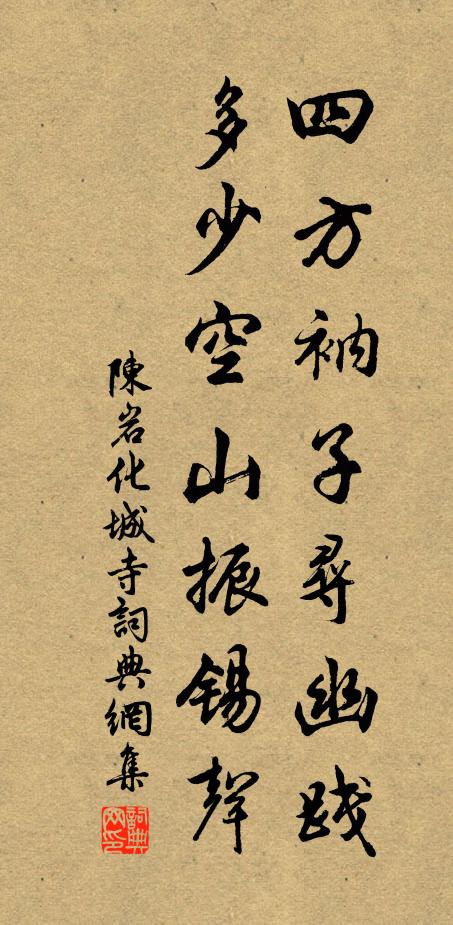 四方衲子尋幽踐
多少空山振錫聲
陳岩化城寺詞典網集
詞典網印